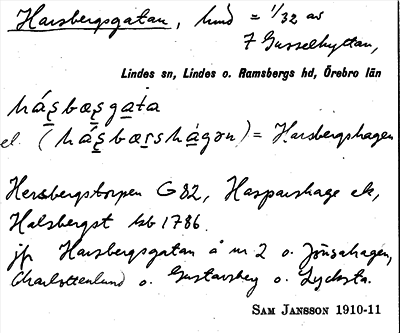 Harsbergsgatan, lund = 1/32 av
7 Gusselhyttan,
Lindes sn, Lindes o. Ramsbergs hd, Örebro län
hás̱bæs̱ga̱ta
el. (hás̱bæṟshágən) = Harsbergshagen
Hersbergstorpen G 82, Hasparshage ek,
Halsbergst lsb 1786.
jfr Harsbergsgatan å nr 2 o. Jönsahagen,
Charlottenlund o. Gustavsberg o. Lycksta.
SAM JANSSON 1910-11